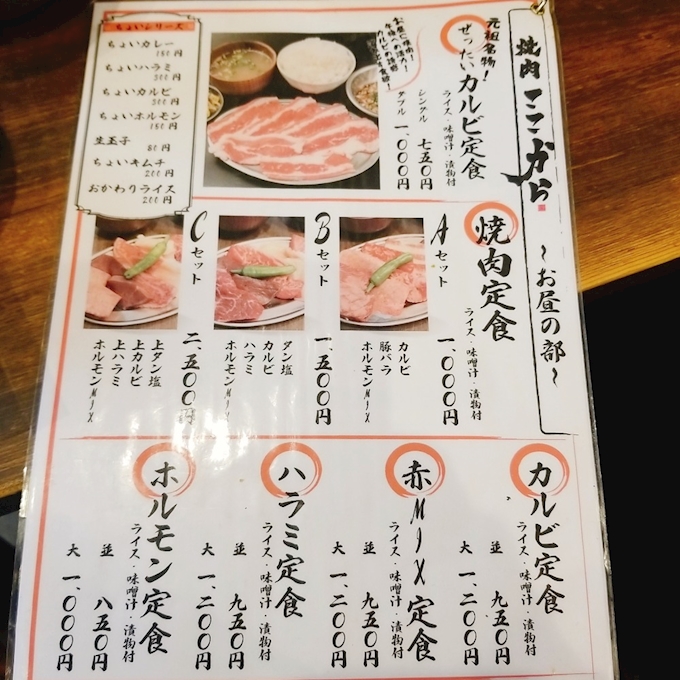 焼肉 ここから
～お昼の部～
元祖名物！
ぜったいカルビ定食
ライス・味噌汁・漬物付
シングル 七五〇円
ダブル 一、〇〇〇円
お昼に焼肉！
午後への活力！
ちょいシリーズ
ちょいカレー
150円
ちょいハラミ
300円
ちょいカルビ
300円
ちょいホルモン
150円
生玉子
80円
ちょいキムチ
200円
おかわりライス
200円
焼肉定食
ライス・味噌汁・漬物付
Aセット
一、〇〇〇円
カルビ
豚バラ
ホルモンMIX
Bセット
一、五〇〇円
タン塩
カルビ
ハラミ
ホルモンMIX
Cセット
二、五〇〇円
上タン塩
上カルビ
上ハラミ
ホルモンMIX
カルビ定食
ライス・味噌汁・漬物付
並 九五〇円
大 一、二〇〇円
赤MIX定食
ライス・味噌汁・漬物付
並 九五〇円
大 一、二〇〇円
ハラミ定食
ライス・味噌汁・漬物付
並 九五〇円
大 一、二〇〇円
ホルモン定食
ライス・味噌汁・漬物付
並 八五〇円
大 一、〇〇〇円